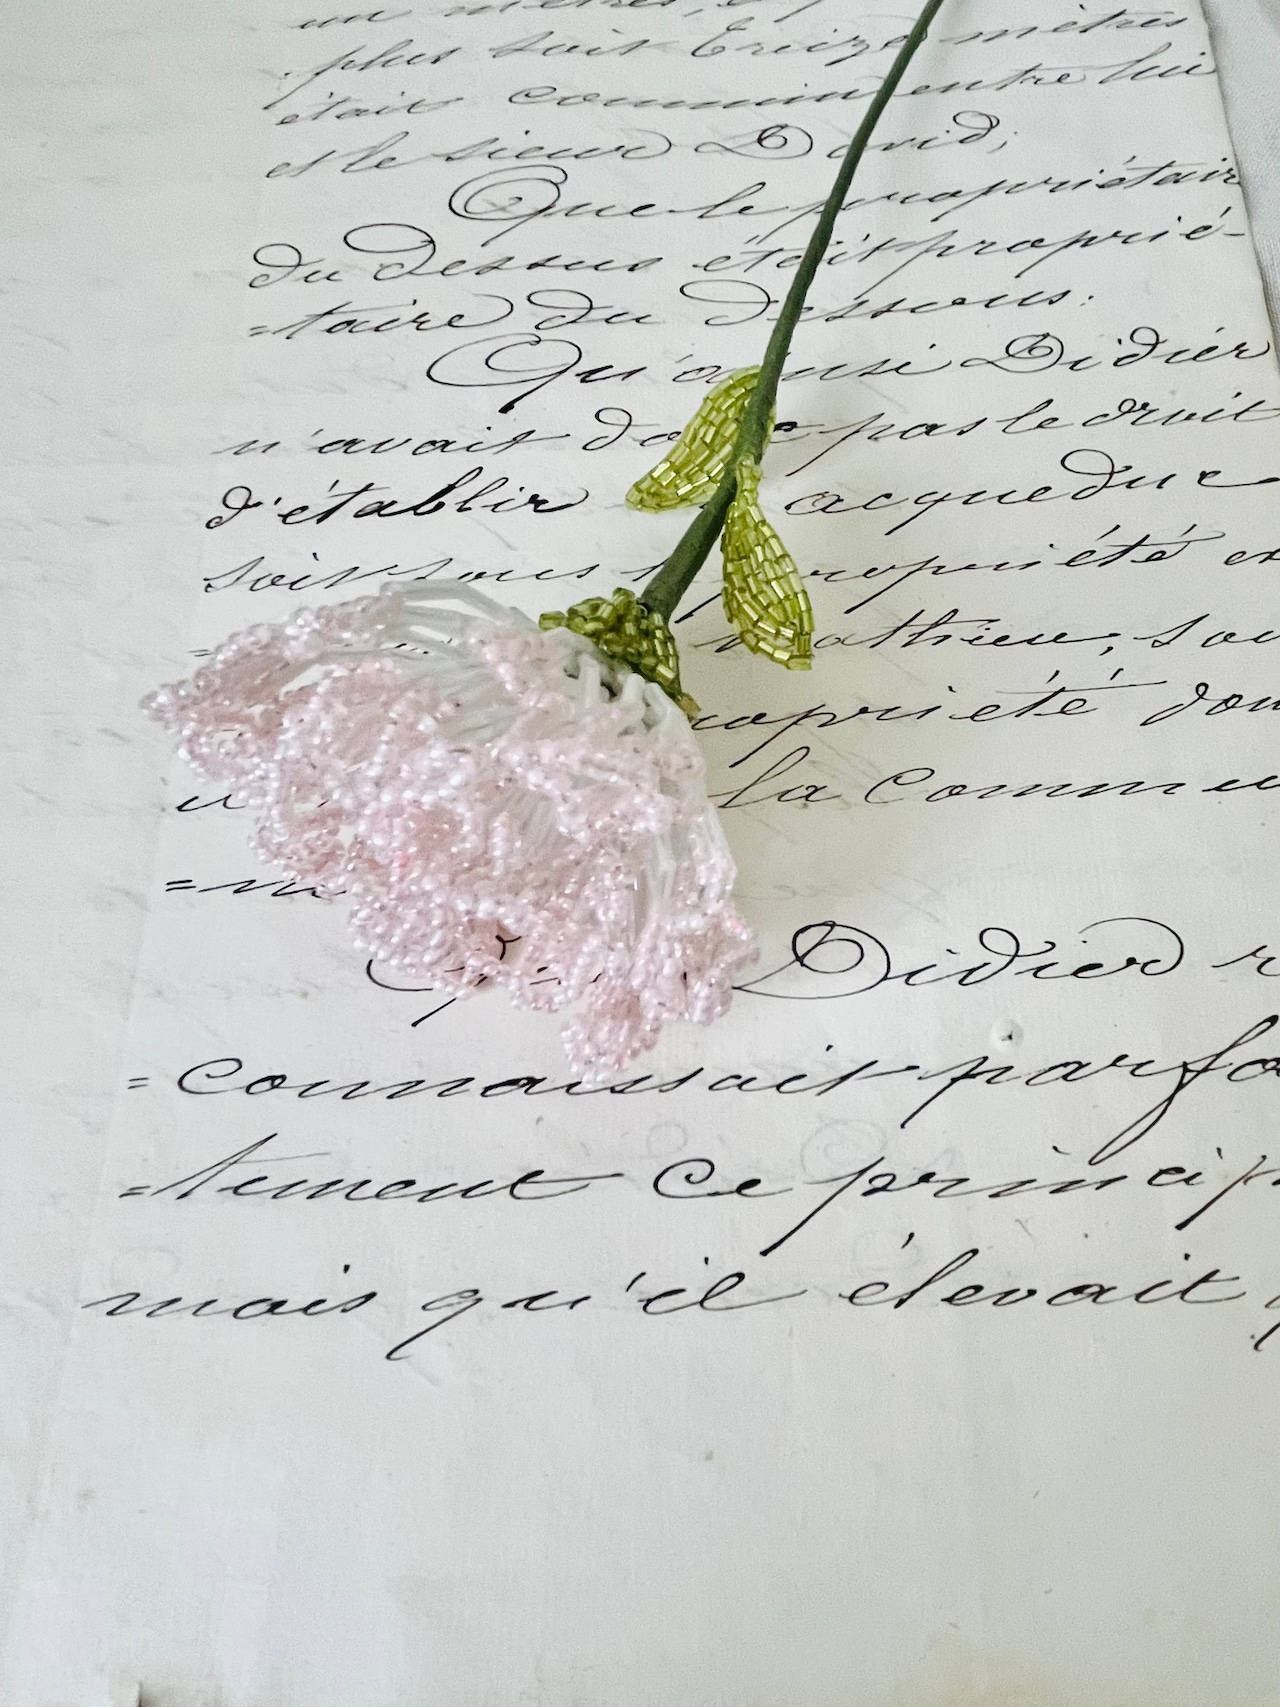 un mètres,
plus soit treize mètres
était commun entre lui
et le sieur David;
Que le propriétair
du dessus était proprié-
=taire du dessous:
Qu'ainsi Didier
n'avait pas le droit
d'établir acqueduc
soit sous propriété
Mathieu, sou
propriété don
la Commu
=ni
Didier r
=connaissait parfa
=tement ce princip
mais qu'il élevait